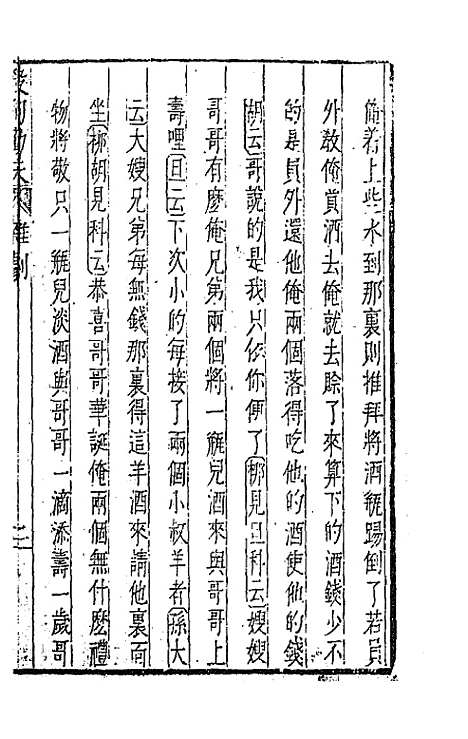 俺着上些水到那裏則推拜將酒甁踢倒了若員
外教俺賞酒去俺就去賒了來算下的酒錢少不
的是員外還他俺兩個落得吃他的酒使他的錢
胡云哥說的是我只依你便了柳見旦科云嫂嫂
哥哥有麽俺兄第兩個將一甁兒酒來與哥哥上
壽哩旦云下次小的每接了兩個小叔羊者孫大
云大嫂兄第每無錢那裏得這羊酒來請他裏面
坐柳胡見科云恭喜哥哥華誕俺兩個無什麽禮
物將敬只一甁兒淡酒與哥哥一滴添壽一歲哥
殺狗勸夫雜劇
二